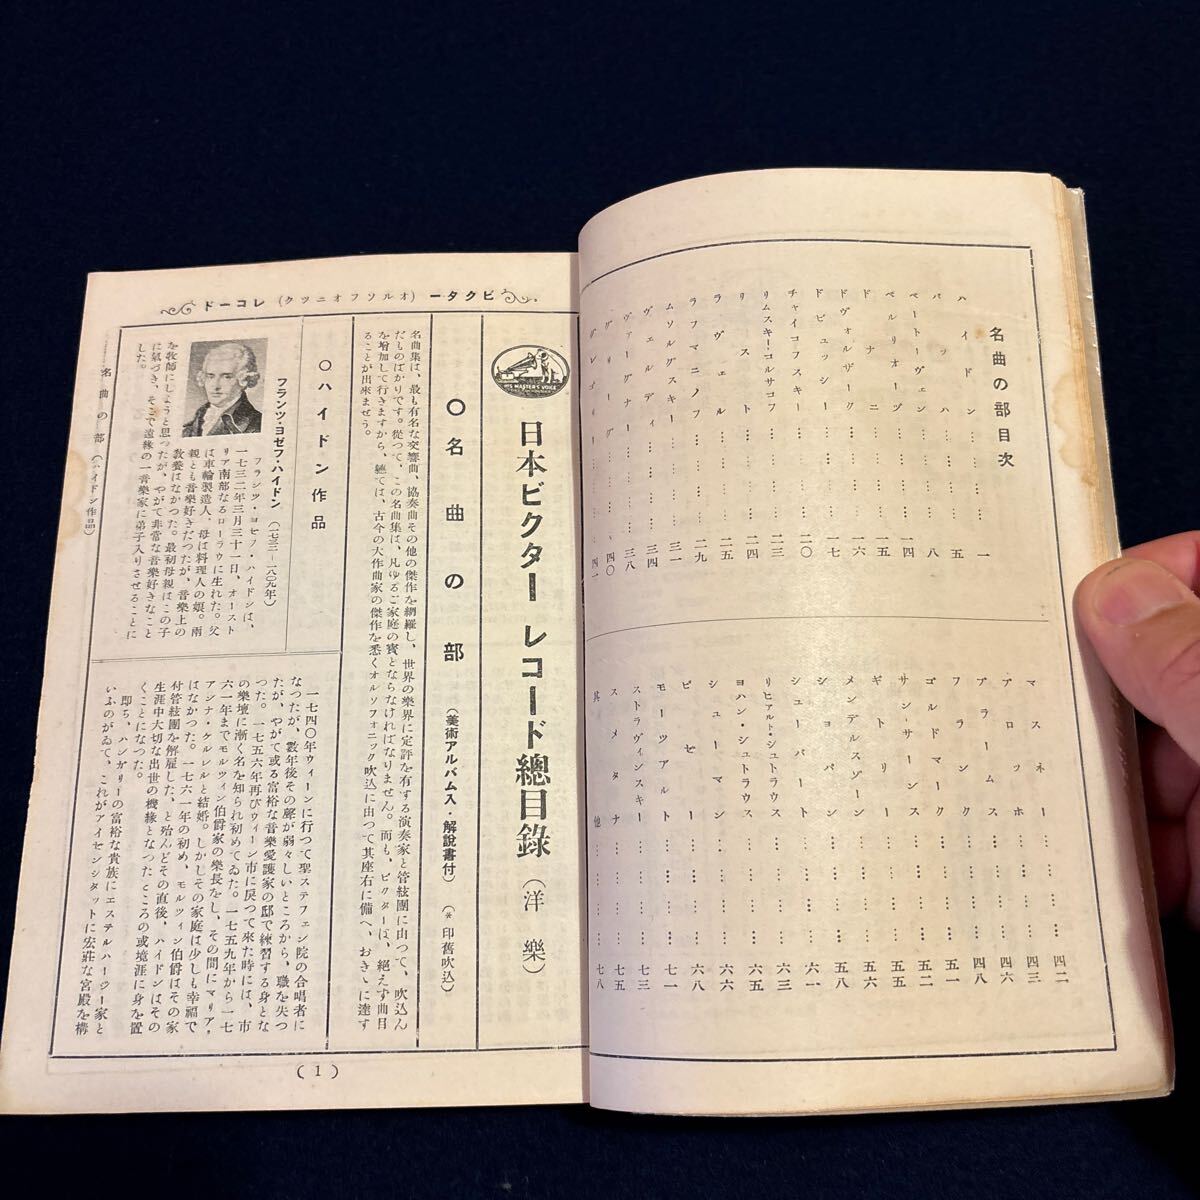 名曲の部目次
ハイドン……一
バッハ……五
ベートーヴェン……八
ベルリオーヅ……一四
ドナニ……一五
ドヴォルザーク……一六
ドビュッシー……一七
チャイコフスキー……二〇
リムスキー・コルサコフ……二三
リスト……二四
ラヴェル……二五
ラフマニノフ……二九
ムソルグスキー……三一
ヴェルディ……三四
ヴァーグナー……三八
グリーグ……四〇
マスネー……四二
ブロッホ……四三
ブラームス……四六
フランク……四八
ゴルドマーク……五一
サン・サーンス……五二
ギトリー……五五
メンデルスゾーン……五六
ショパン……五八
シューバート……六一
リヒアルト・シュトラウス……六三
ヨハン・シュトラウス……六五
シューマン……六六
ビゼー……六八
モーツアルト……七一
ストラヴィンスキー……七三
スメタナ……七五
其他……七八
ビクター（オルソフオニツク）レコード
HIS MASTER'S VOICE
日本ビクター レコード總目錄（洋樂）
〇名曲の部（美術アルバム入・解說書付）（＊印舊吹込）
名曲集は、最も有名な交響曲、協奏曲その他の傑作を網羅し、世界の樂界に定評を有する演奏家と管絃團に由つて、吹込ん
だものばかりです。從つて、この名曲集は、凡ゆるご家庭の寳とならなければなりません。而も、ビクターは、絕えず曲目
を增加して行きますから、軈ては、古今の大作曲家の傑作を悉くオルソフォニック吹込に由つて其座右に備へ、おきゝに達す
ることが出來ませう。
〇ハイドン作品
フランツ・ヨゼフ・ハイドン（一七三二—一八〇九年）
フランツ・ヨゼフ・ハイドンは、
一七三二年三月三十一日、オースト
リア南部なるローラウに生れた。父
は車輪製造人、母は料理人の娘。兩
親とも音樂好きだつたが、音樂上の
敎養はなかつた。最初母親はこの子
を牧師にしようと思つたが、やがて非常な音樂好きなこと
に氣づき、そこで遠緣の一音樂家に弟子入りさせることに
した。
一七四〇年ウィーンに行つて聖ステフェン院の合唱者に
なつたが、數年後その聲が弱々しいところから、職を失つ
たが、やがて或る富裕な音樂愛護家の邸で練習する身とな
つた。一七五六年再びウィーン市に戾つて來た時には、市
の樂壇に漸く名を知られ初めてゐた。一七五九年から一七
六一年までモルツィン伯爵家の樂長をし、その間にマリア・
アンナ・ケルレルと結婚。しかしその家庭は少しも幸福で
はなかつた。一七六一年の初め、モルツィン伯爵はその家
付管絃團を解雇した、と殆んどその直後、ハイドンはその
生涯中大切な出世の機緣となつたところの或境涯に身を置
くことになつた。
卽ち、ハンガリーの富裕な貴族にエステルハージー家と
いふのがゐて、これがアイゼンシタットに宏莊な宮殿を構
名曲の部（ハイドン作品）
（1）